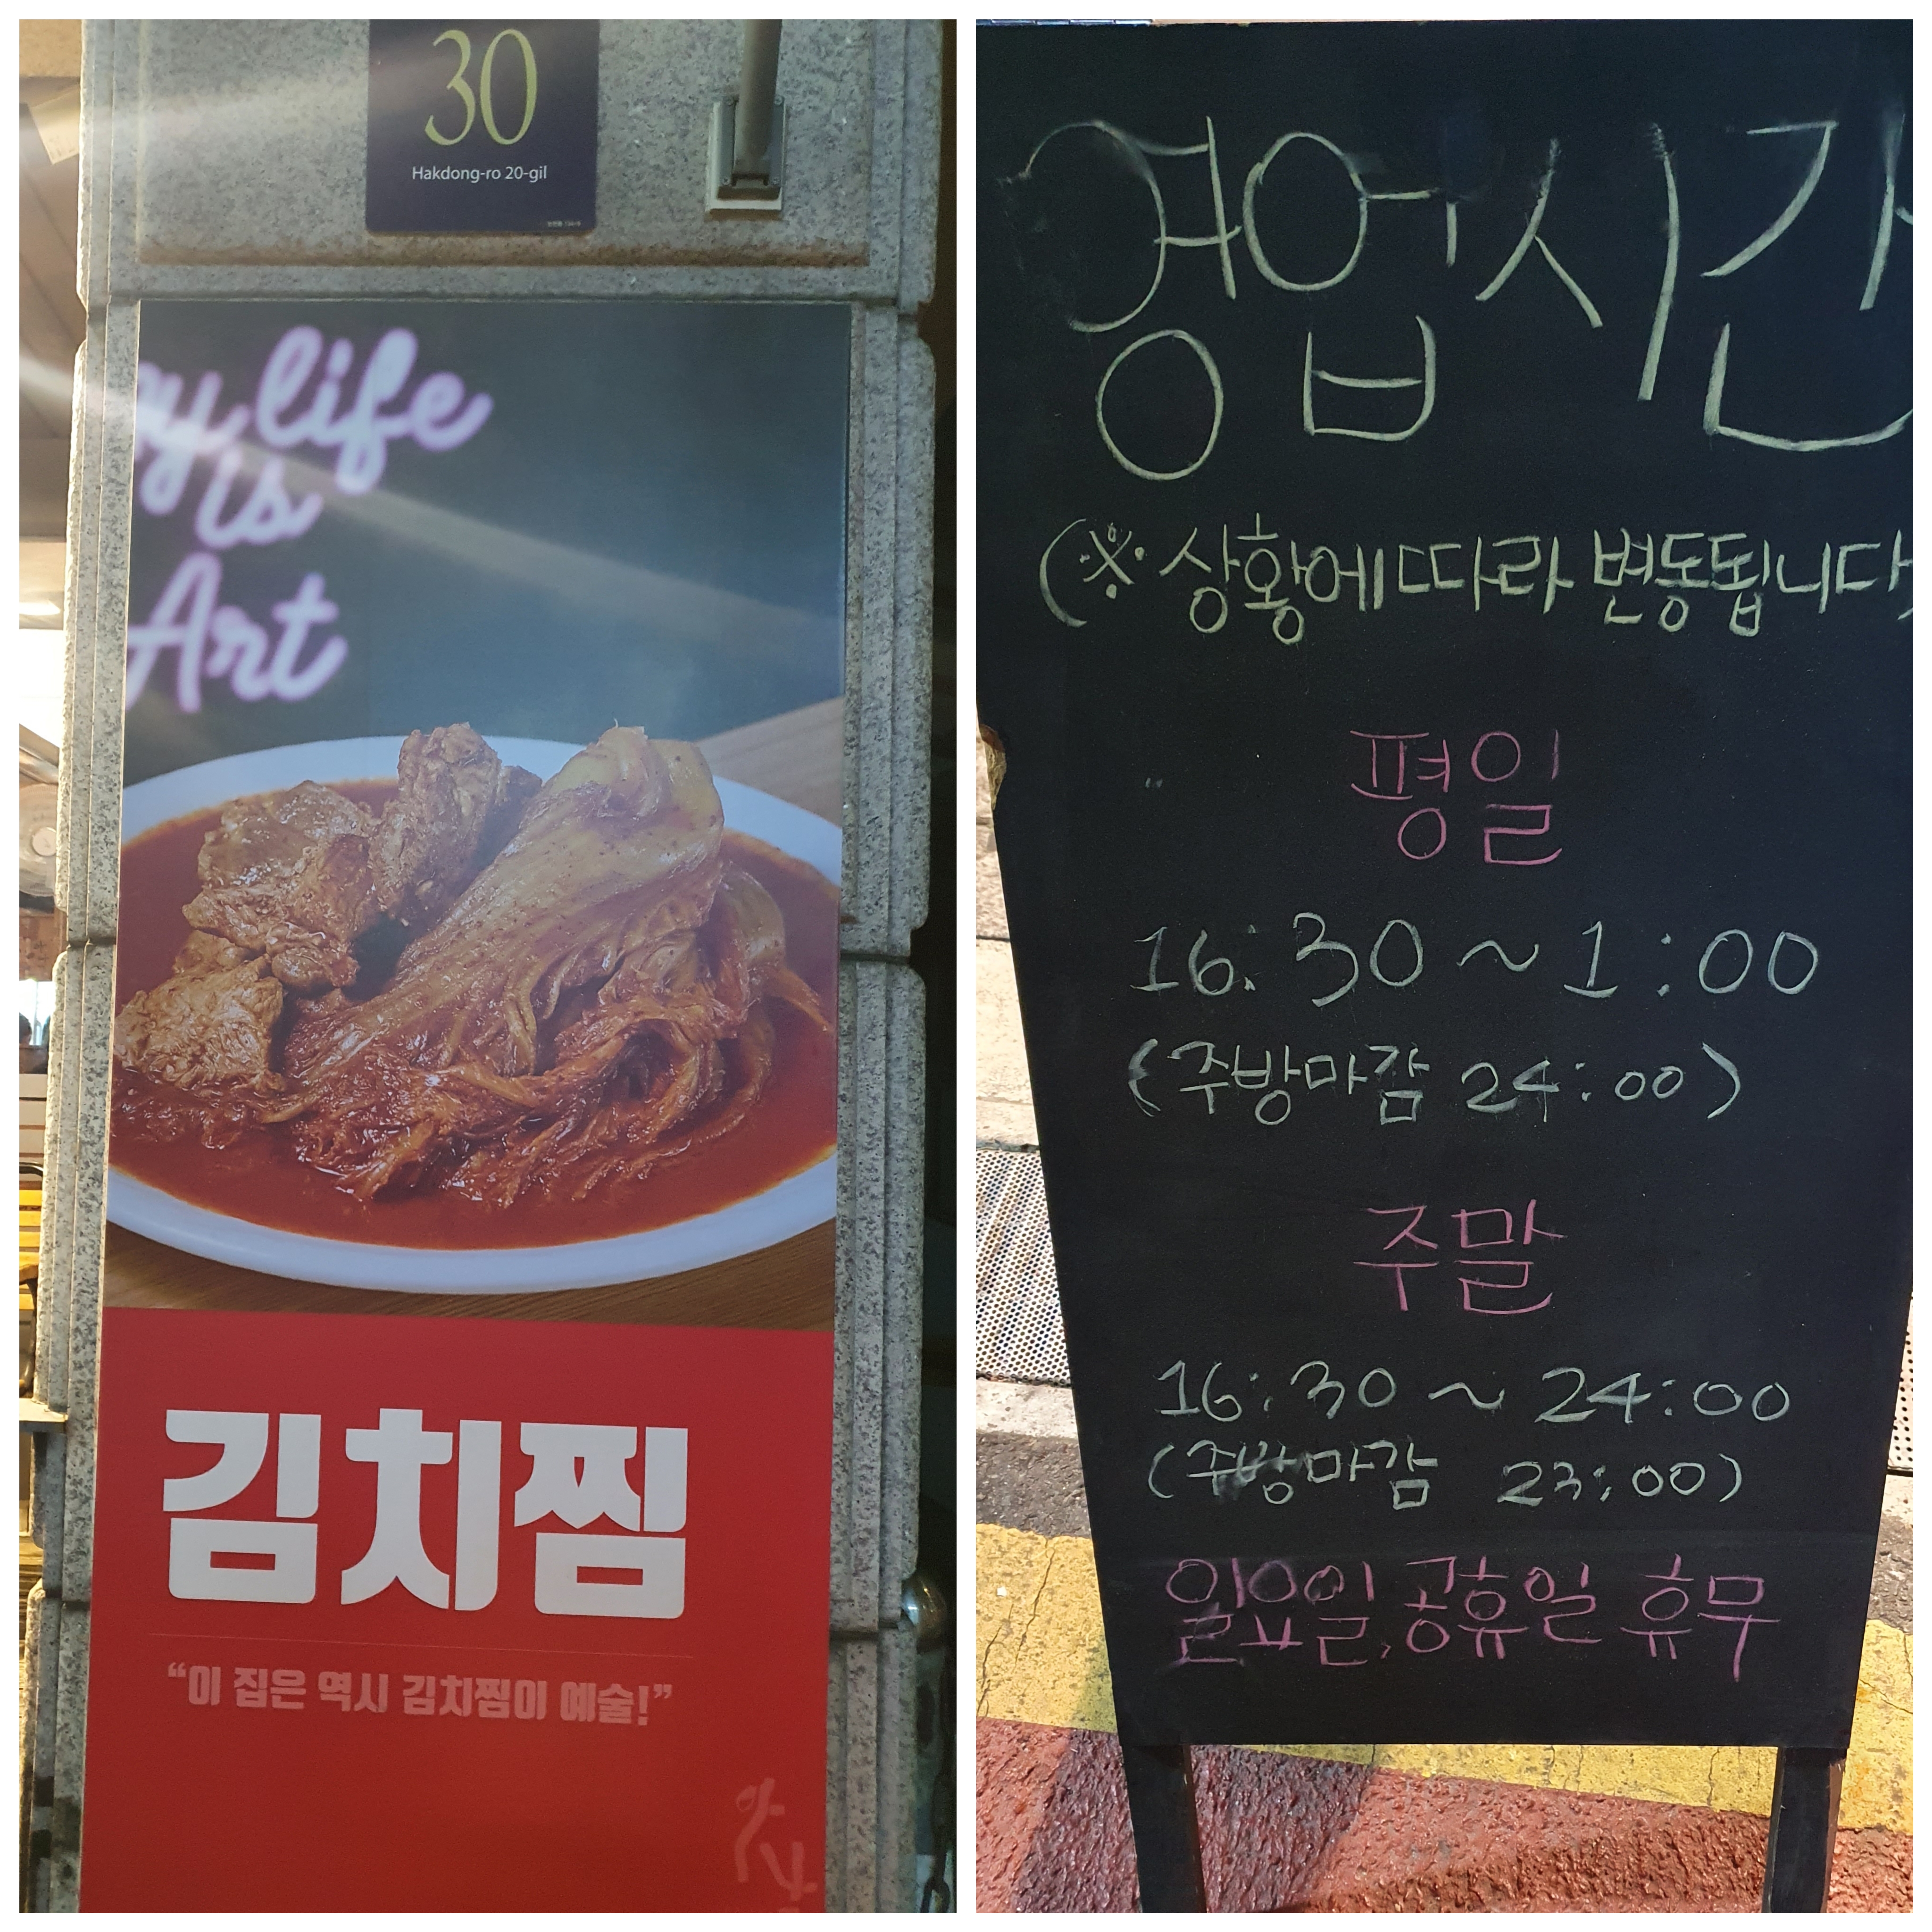 30
Hakdong-ro 20-gil
my life
is
Art
김치찜
“이 집은 역시 김치찜이 예술!”
영업시간
(※ 상황에 따라 변동됩니다)
평일
16:30 ~ 1:00
(주방마감 24:00)
주말
16:30 ~ 24:00
(주방마감 23:00)
일요일, 공휴일 휴무